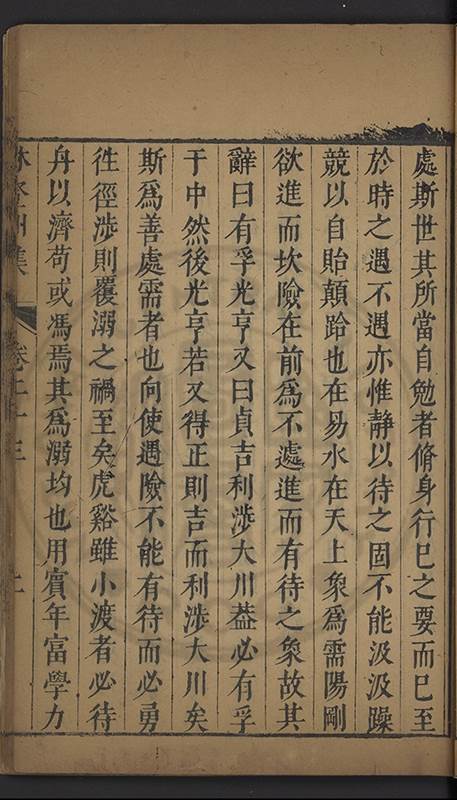 處斯世其所當自勉者脩身行已之要而已至
於時之遇不遇亦惟靜以待之固不能汲汲躁
競以自貽顛跲也在易水在天上象爲需陽剛
欲進而坎險在前爲不遽進而有待之象故其
辭曰有孚光亨又曰貞吉利涉大川葢必有孚
于中然後光亨若又得正則吉而利涉大川矣
斯爲善處需者也向使遇險不能有待而必勇
徃徑涉則覆溺之禍至矣虎谿雖小渡者必待
舟以濟苟或馮焉其爲溺均也用賔年富學力
林登州集 卷二十三 二